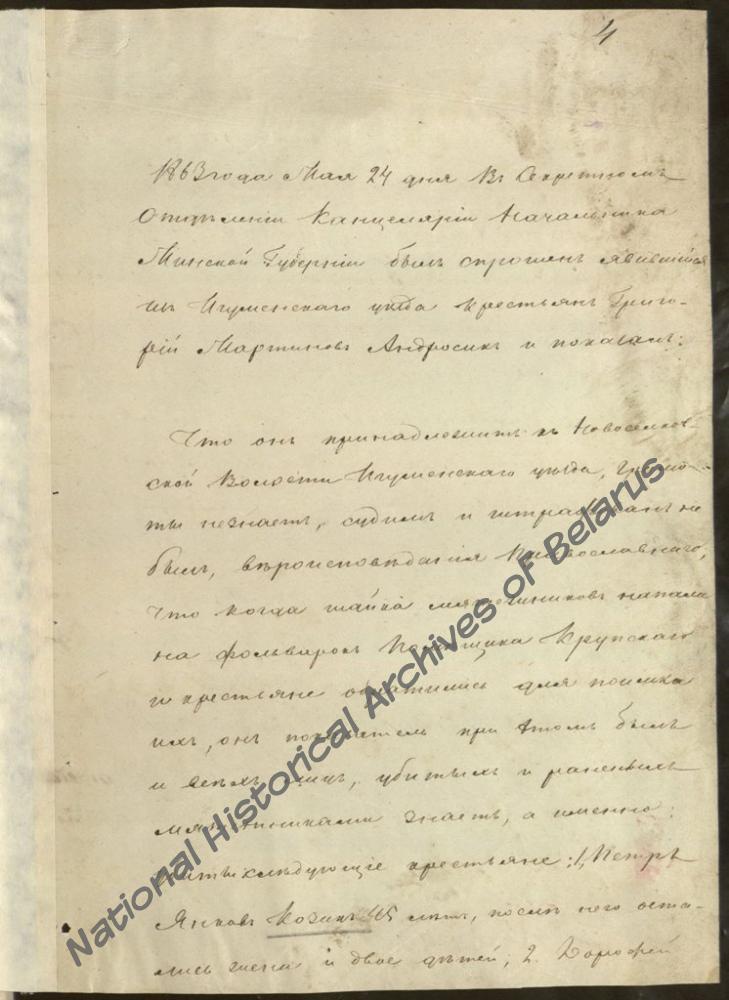 4
1863 года Мая 24 дня въ Секретномъ
Отдѣленіи Канцеляріи Начальника
Минской Губерніи былъ спрошенъ явившійся
изъ Игуменскаго уѣзда крестьянъ Григо-
рій Мартиновъ Андросикъ и показалъ:
Что онъ принадлежитъ къ Новоселков-
ской Волости Игуменскаго уѣзда, грамо-
ты незнаетъ, судимъ и штрафованъ не
былъ, вѣроисповѣданія Православнаго,
что когда шайка мятежниковъ напала
на фольварокъ Помѣщика Крупскаго
и крестьяне обратились для поимки
ихъ, онъ показатель при этомъ былъ
и всѣхъ лицъ, убитыхъ и раненыхъ
мятежниками знаетъ, а именно:
убиты слѣдующіе крестьяне: 1, Петръ
Янковъ Козикъ 45 лѣтъ, послѣ него оста-
лись жена и двое дѣтей; 2. Дорофей
National Historical Archives of Belarus